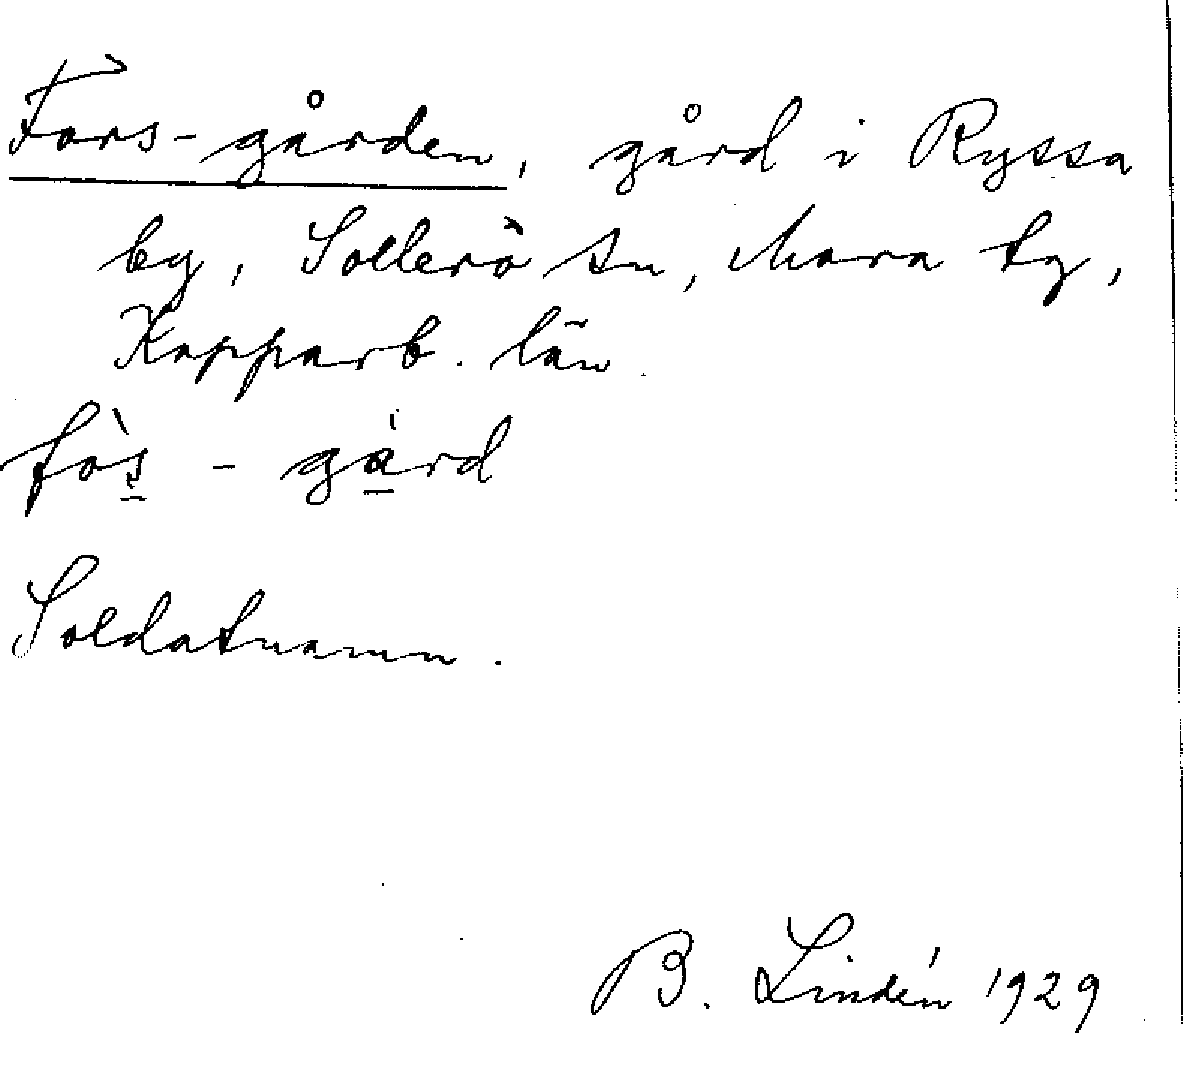 Fors-gården, gård i Ryssa
by, Sollerö sn, Mora tg,
Kopparb. län.
fòs̱ - gá̱rd
Soldatnamn.
B. Lindén 1929